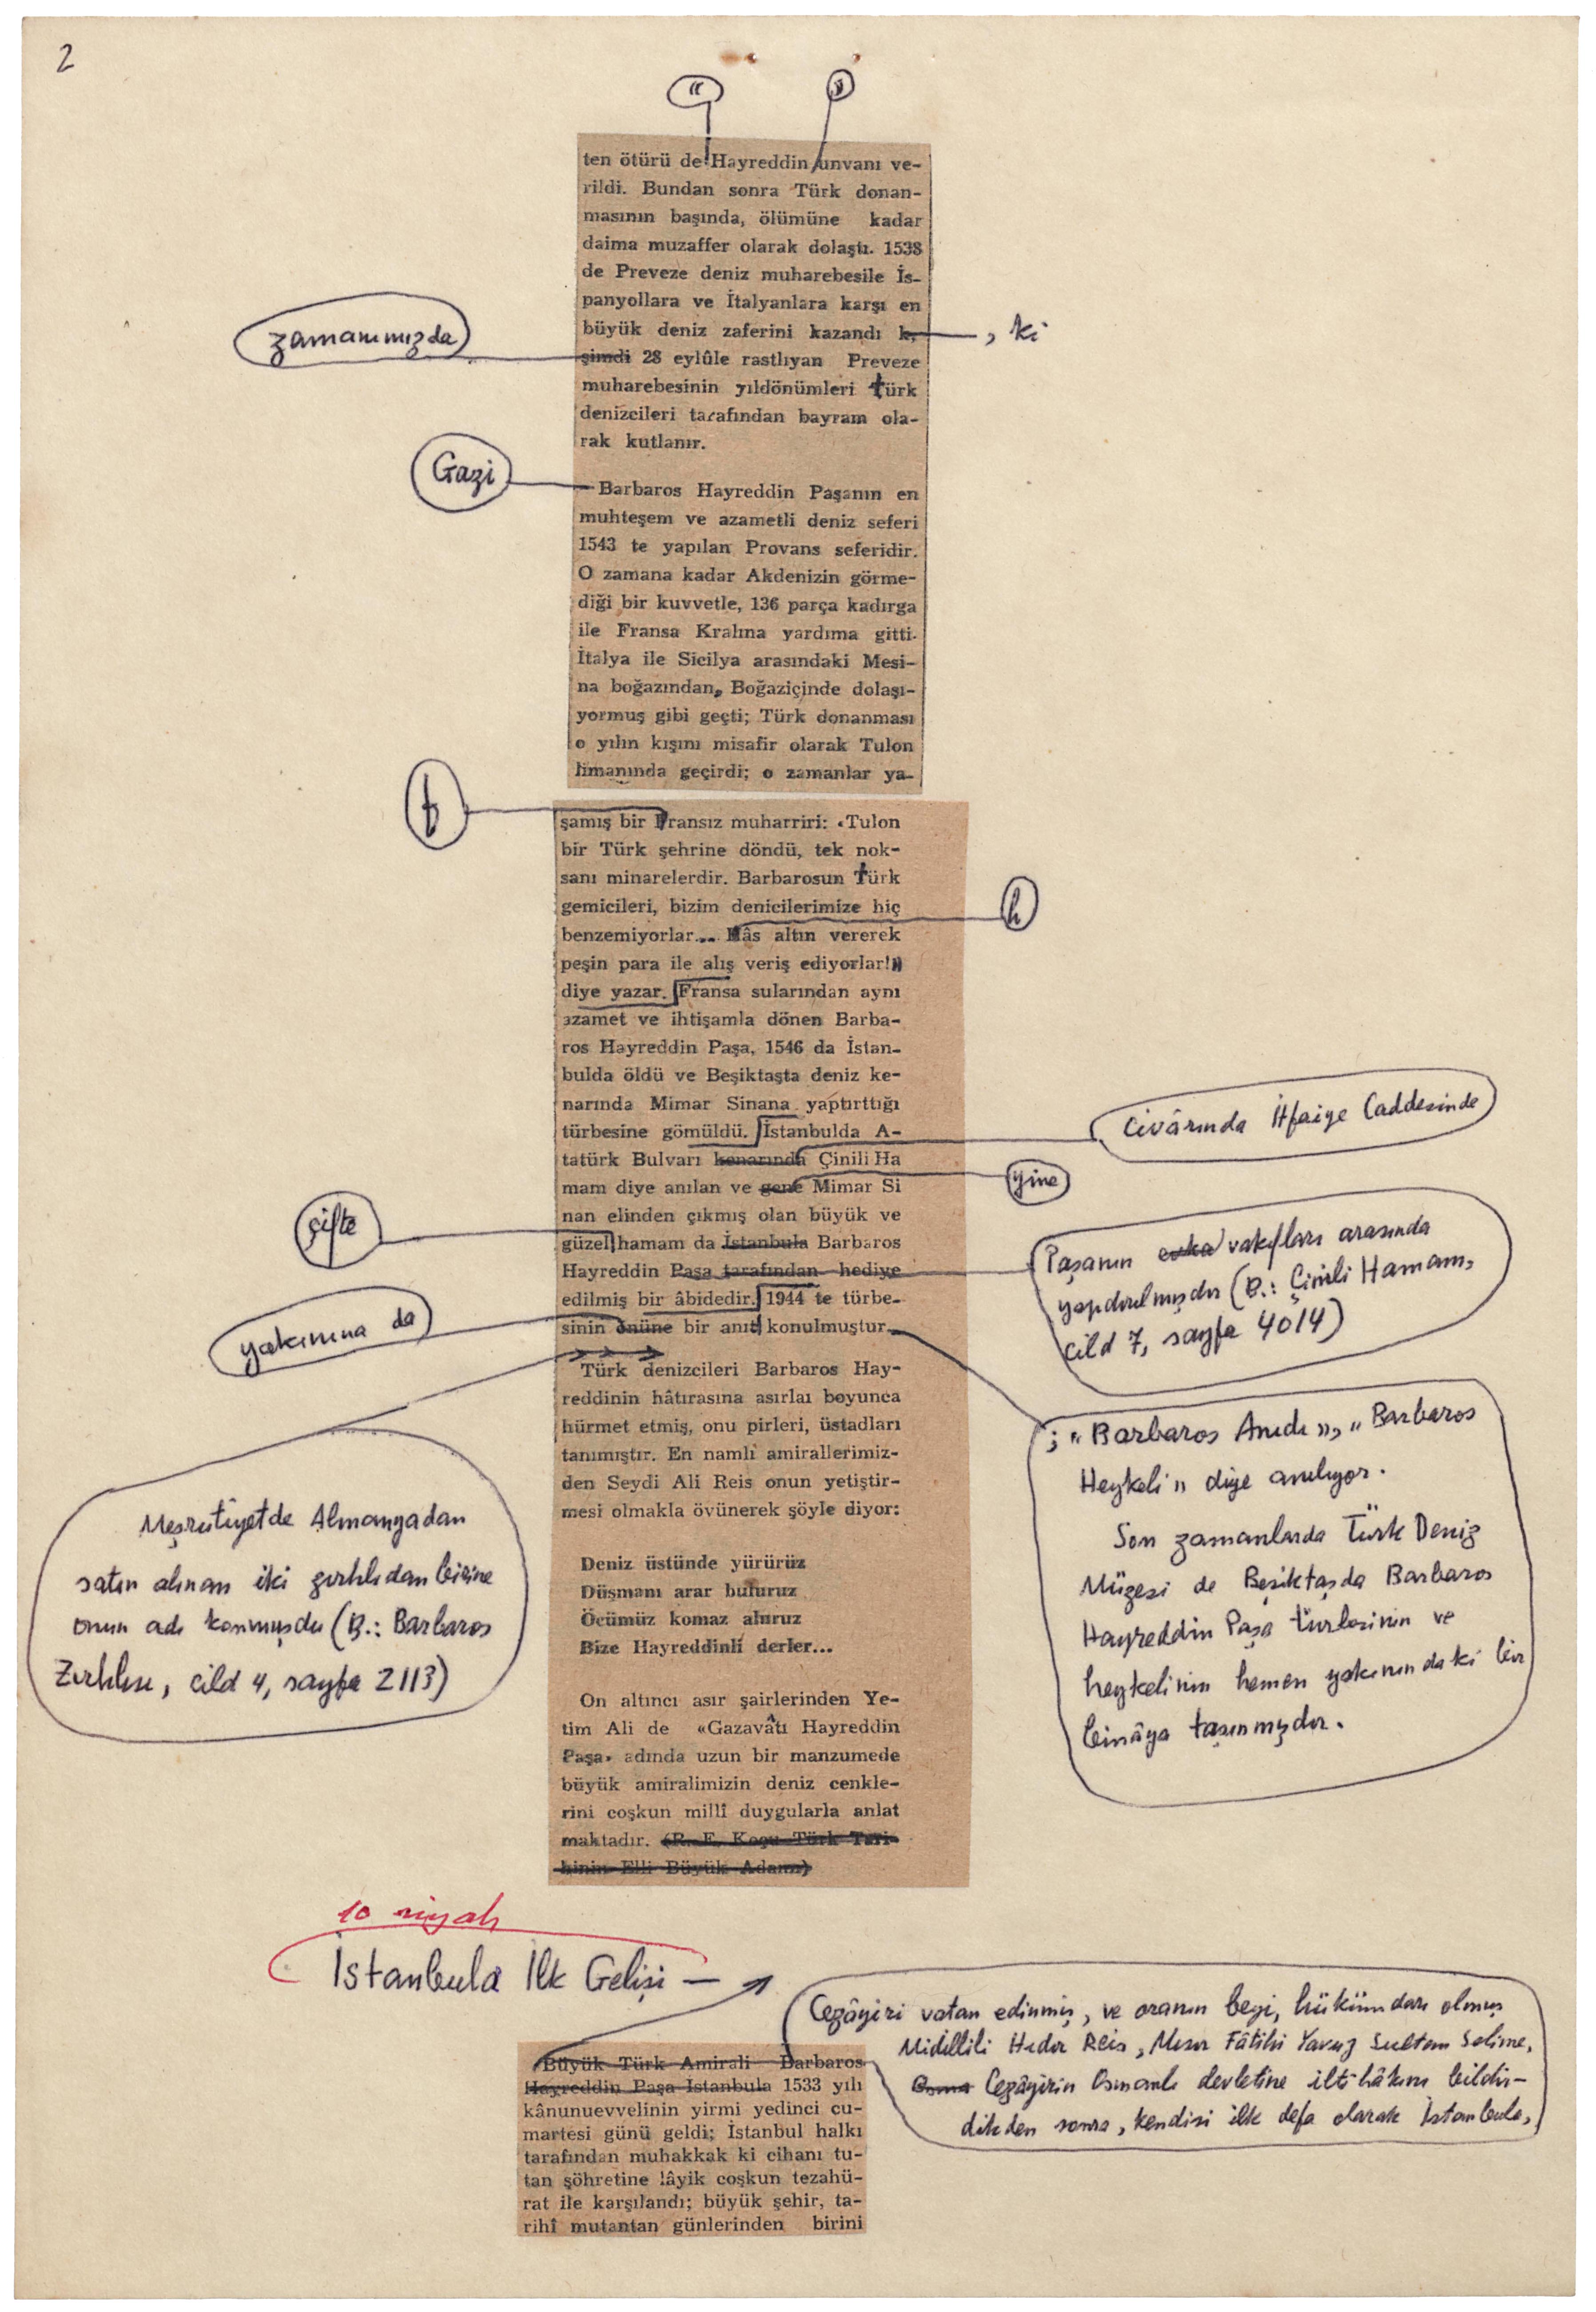 2
“ ”
ten ötürü de Hayreddin unvanı ve-
rildi. Bundan sonra Türk donan-
masının başında, ölümüne kadar
daima muzaffer olarak dolaştı. 1538
de Preveze deniz muharebesile İs-
panyollara ve İtalyanlara karşı en
büyük deniz zaferini kazandı k,
, ki
zamanımızda
şimdi 28 eylûle rastlıyan Preveze
muharebesinin yıldönümleri türk
denizcileri tarafından bayram ola-
rak kutlanır.
Gazi
Barbaros Hayreddin Paşanın en
muhteşem ve azametli deniz seferi
1543 te yapılan Provans seferidir.
O zamana kadar Akdenizin görme-
diği bir kuvvetle, 136 parça kadırga
ile Fransa Kralına yardıma gitti.
İtalya ile Sicilya arasındaki Mesi-
na boğazından, Boğaziçinde dolaşı-
yormuş gibi geçti; Türk donanması
o yılın kışını misafir olarak Tulon
limanında geçirdi; o zamanlar ya-
f
şamış bir Fransız muharriri: «Tulon
bir Türk şehrine döndü, tek nok-
sanı minarelerdir. Barbarosun türk
gemicileri, bizim denicilerimize hiç
h
benzemiyorlar... Hâs altın vererek
peşin para ile alış veriş ediyorlar!»
diye yazar. Fransa sularından aynı
azamet ve ihtişamla dönen Barba-
ros Hayreddin Paşa, 1546 da İstan-
bulda öldü ve Beşiktaşta deniz ke-
narında Mimar Sinana yaptırttığı
türbesine gömüldü. İstanbulda A-
civârında İtfaiye Caddesinde
tatürk Bulvarı kenarında Çinili Ha
yine
mam diye anılan ve gene Mimar Si
nan elinden çıkmış olan büyük ve
çifte
güzel hamam da İstanbula Barbaros
Hayreddin Paşa tarafından hediye
Paşanın vakıfları arasında
yapdırılmışdır (B.: Çinili Hamam,
cild 7, sayfa 4014)
edilmiş bir âbidedir. 1944 te türbe-
yakınına da
sinin önüne bir anıt konulmuştur.
; “Barbaros Anıdı”, “Barbaros
Heykeli” diye anılıyor.
Son zamanlarda Türk Deniz
Müzesi de Beşiktaşda Barbaros
Hayreddin Paşa türbesinin ve
heykelinin hemen yakınındaki bir
binâya taşınmışdır.
Meşrutiyetde Almanyadan
satın alınan iki zırhlıdan birine
onun adı konmuşdu (B.: Barbaros
Zırhlısı, cild 4, sayfa 2113)
Türk denizcileri Barbaros Hay-
reddinin hâtırasına asırlar boyunca
hürmet etmiş, onu pirleri, üstadları
tanımıştır. En namlı amirallerimiz-
den Seydi Ali Reis onun yetiştir-
mesi olmakla övünerek şöyle diyor:
Deniz üstünde yürürüz
Düşmanı arar buluruz
Öcümüz komaz aluruz
Bize Hayreddinli derler...
On altıncı asır şairlerinden Ye-
tim Ali de «Gazavâtı Hayreddin
Paşa» adında uzun bir manzumede
büyük amiralimizin deniz cenkle-
rini coşkun millî duygularla anlat
maktadır. (R. E. Koçu Türk Tari-
hinin Elli Büyük Adamı)
10 siyah
İstanbula İlk Gelişi —
Cezâyiri vatan edinmiş, ve oranın beyi, hükümdarı olmuş
Midillili Hıdır Reis, Mısır Fâtihi Yavuz Sultan Selime,
Osma Cezâyirin Osmanlı devletine iltihâkını bildir-
dikden sonra, kendisi ilk defa olarak İstanbula,
Büyük Türk Amirali Barbaros
Hayreddin Paşa İstanbula 1533 yılı
kânunuevvelinin yirmi yedinci cu-
martesi günü geldi; İstanbul halkı
tarafından muhakkak ki cihanı tu-
tan şöhretine lâyik coşkun tezahü-
rat ile karşılandı; büyük şehir, ta-
rihî mutantan günlerinden birini